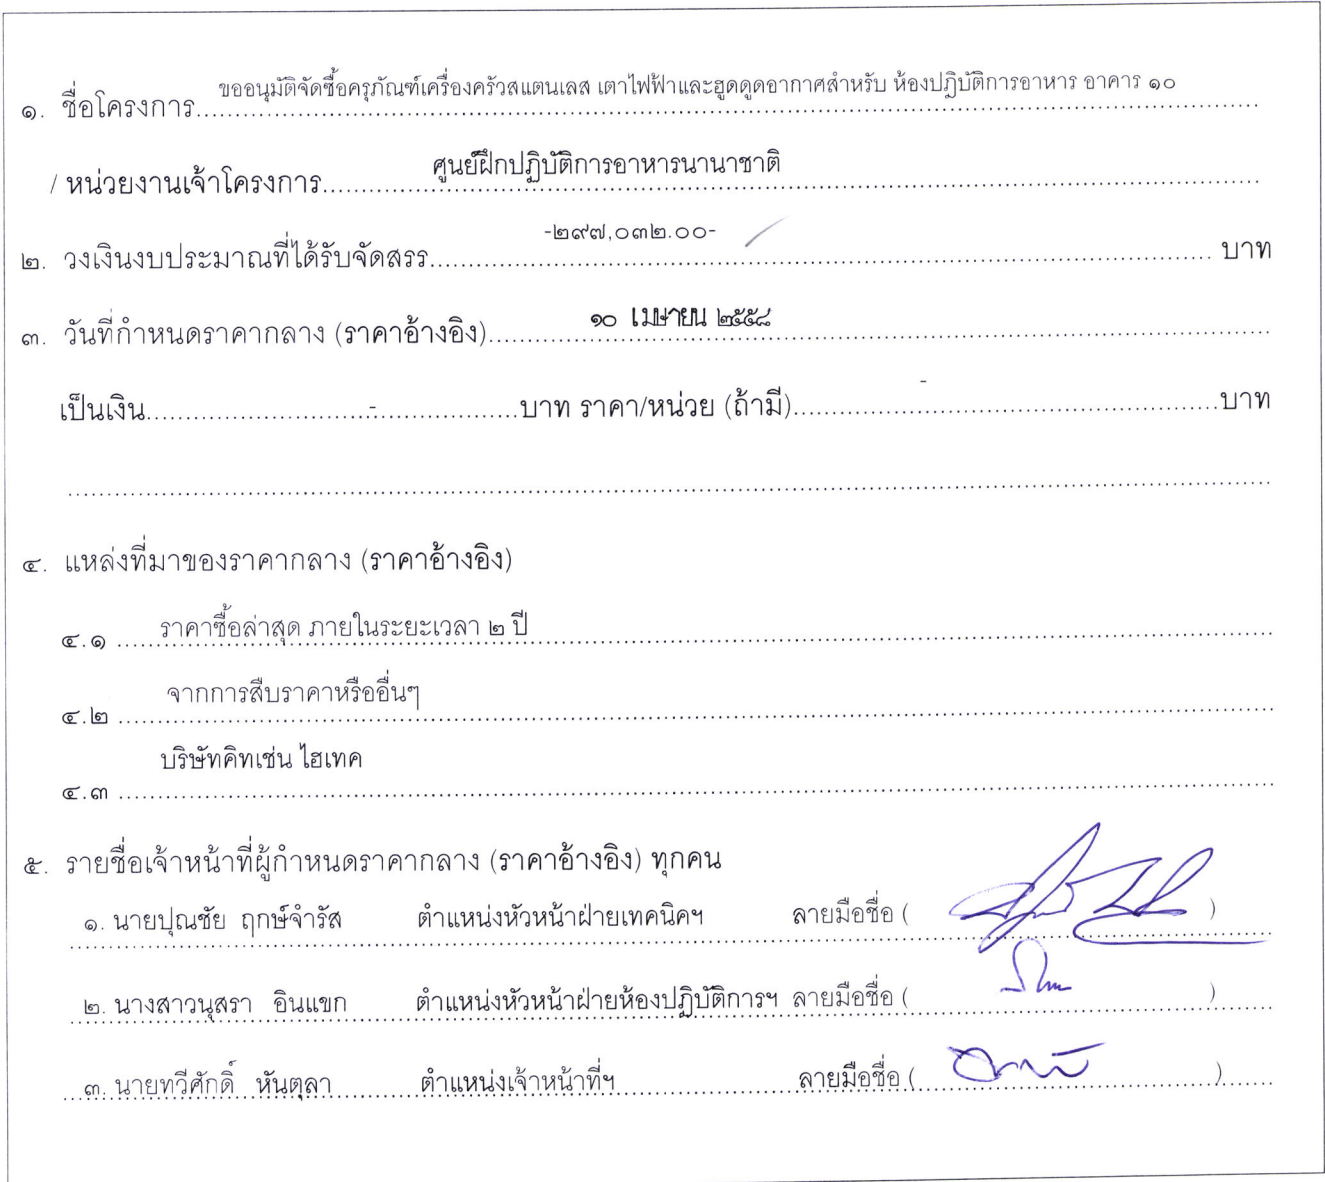 ๑. ชื่อโครงการ ขออนุมัติจัดซื้อครุภัณฑ์เครื่องครัวสแตนเลส เตาไฟฟ้าและฮูดดูดอากาศสำหรับ ห้องปฏิบัติการอาหาร อาคาร ๑๐
/ หน่วยงานเจ้าโครงการ ศูนย์ฝึกปฏิบัติการอาหารนานาชาติ
๒. วงเงินงบประมาณที่ได้รับจัดสรร -๒๙๗,๐๓๒.๐๐- บาท
๓. วันที่กำหนดราคากลาง (ราคาอ้างอิง) ๑๐ เมษายน ๒๕๕๘
เป็นเงิน - บาท ราคา/หน่วย (ถ้ามี) - บาท
๔. แหล่งที่มาของราคากลาง (ราคาอ้างอิง)
๔.๑ ราคาซื้อล่าสุด ภายในระยะเวลา ๒ ปี
๔.๒ จากการสืบราคาหรืออื่นๆ
๔.๓ บริษัทคิทเช่น ไฮเทค
๕. รายชื่อเจ้าหน้าที่ผู้กำหนดราคากลาง (ราคาอ้างอิง) ทุกคน
๑. นายปุณชัย ฤกษ์จำรัส ตำแหน่งหัวหน้าฝ่ายเทคนิคฯ ลายมือชื่อ ( )
๒. นางสาวนุสรา อินแขก ตำแหน่งหัวหน้าฝ่ายห้องปฏิบัติการฯ ลายมือชื่อ ( )
๓. นายทวีศักดิ์ หันตุลา ตำแหน่งเจ้าหน้าที่ฯ ลายมือชื่อ ( )